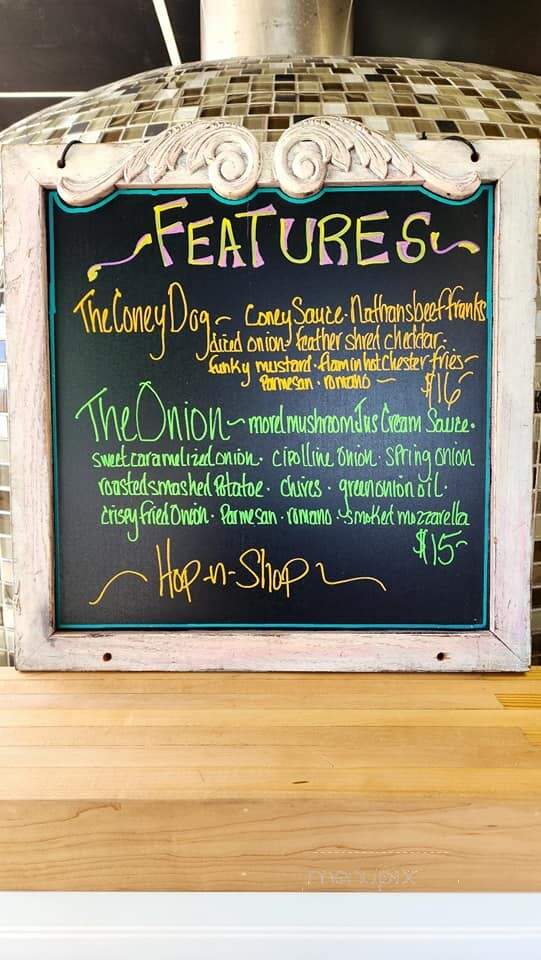 FEATURES
The Coney Dog ~ Coney Sauce · Nathans beef franks
diced onion · feather shred cheddar ·
funky mustard · flamin hot Chester fries ~
Parmesan · romano ~ $16
The Onion ~ morel mushroom Jus Cream Sauce ·
sweet caramelized onion · cipolline onion · spring onion
roasted smashed Potatoe · chives · green onion oil ·
crispy fried Onion · Parmesan · romano · smoked mozzarella
$15~
Hop-n-Shop
menupix